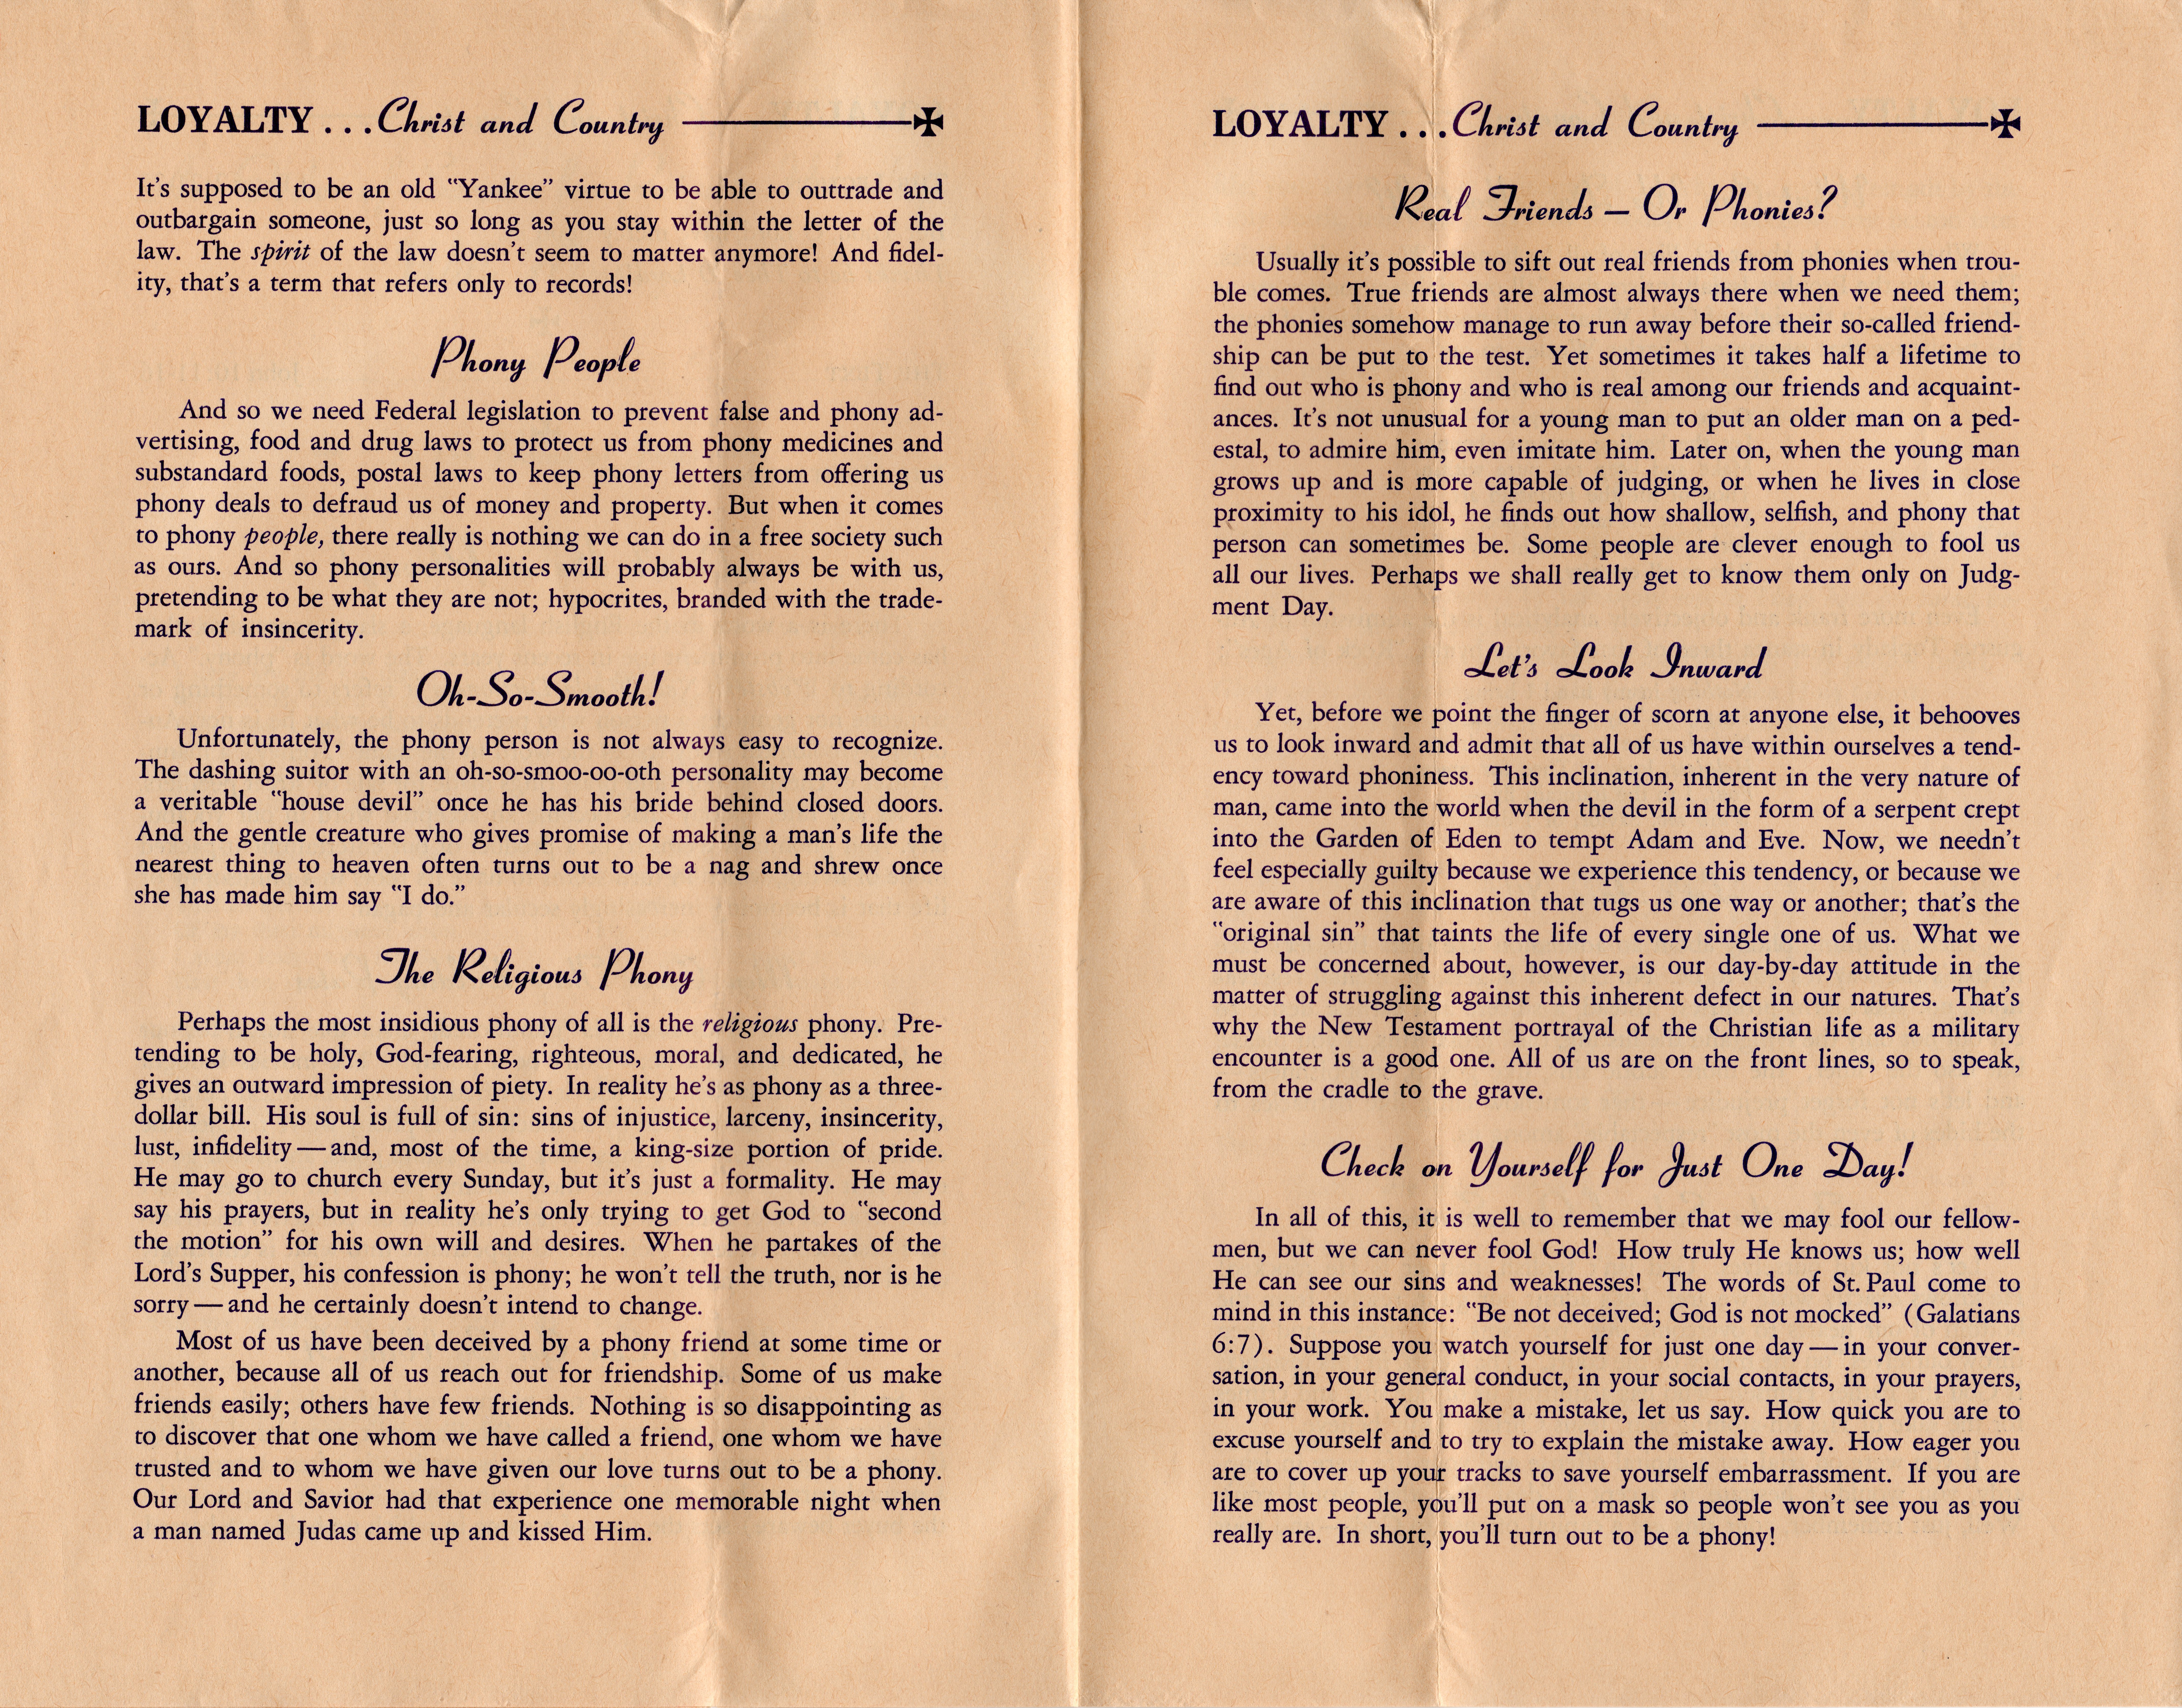 LOYALTY . . . Christ and Country
It's supposed to be an old "Yankee" virtue to be able to outtrade and
outbargain someone, just so long as you stay within the letter of the
law. The spirit of the law doesn't seem to matter anymore! And fidel-
ity, that's a term that refers only to records!
Phony People
And so we need Federal legislation to prevent false and phony ad-
vertising, food and drug laws to protect us from phony medicines and
substandard foods, postal laws to keep phony letters from offering us
phony deals to defraud us of money and property. But when it comes
to phony people, there really is nothing we can do in a free society such
as ours. And so phony personalities will probably always be with us,
pretending to be what they are not; hypocrites, branded with the trade-
mark of insincerity.
Oh-So-Smooth!
Unfortunately, the phony person is not always easy to recognize.
The dashing suitor with an oh-so-smoo-oo-oth personality may become
a veritable "house devil" once he has his bride behind closed doors.
And the gentle creature who gives promise of making a man's life the
nearest thing to heaven often turns out to be a nag and shrew once
she has made him say "I do."
The Religious Phony
Perhaps the most insidious phony of all is the religious phony. Pre-
tending to be holy, God-fearing, righteous, moral, and dedicated, he
gives an outward impression of piety. In reality he's as phony as a three-
dollar bill. His soul is full of sin: sins of injustice, larceny, insincerity,
lust, infidelity — and, most of the time, a king-size portion of pride.
He may go to church every Sunday, but it's just a formality. He may
say his prayers, but in reality he's only trying to get God to "second
the motion" for his own will and desires. When he partakes of the
Lord's Supper, his confession is phony; he won't tell the truth, nor is he
sorry — and he certainly doesn't intend to change.
Most of us have been deceived by a phony friend at some time or
another, because all of us reach out for friendship. Some of us make
friends easily; others have few friends. Nothing is so disappointing as
to discover that one whom we have called a friend, one whom we have
trusted and to whom we have given our love turns out to be a phony.
Our Lord and Savior had that experience one memorable night when
a man named Judas came up and kissed Him.
LOYALTY . . . Christ and Country
Real Friends — Or Phonies?
Usually it's possible to sift out real friends from phonies when trou-
ble comes. True friends are almost always there when we need them;
the phonies somehow manage to run away before their so-called friend-
ship can be put to the test. Yet sometimes it takes half a lifetime to
find out who is phony and who is real among our friends and acquaint-
ances. It's not unusual for a young man to put an older man on a ped-
estal, to admire him, even imitate him. Later on, when the young man
grows up and is more capable of judging, or when he lives in close
proximity to his idol, he finds out how shallow, selfish, and phony that
person can sometimes be. Some people are clever enough to fool us
all our lives. Perhaps we shall really get to know them only on Judg-
ment Day.
Let's Look Inward
Yet, before we point the finger of scorn at anyone else, it behooves
us to look inward and admit that all of us have within ourselves a tend-
ency toward phoniness. This inclination, inherent in the very nature of
man, came into the world when the devil in the form of a serpent crept
into the Garden of Eden to tempt Adam and Eve. Now, we needn't
feel especially guilty because we experience this tendency, or because we
are aware of this inclination that tugs us one way or another; that's the
"original sin" that taints the life of every single one of us. What we
must be concerned about, however, is our day-by-day attitude in the
matter of struggling against this inherent defect in our natures. That's
why the New Testament portrayal of the Christian life as a military
encounter is a good one. All of us are on the front lines, so to speak,
from the cradle to the grave.
Check on Yourself for Just One Day!
In all of this, it is well to remember that we may fool our fellow-
men, but we can never fool God! How truly He knows us; how well
He can see our sins and weaknesses! The words of St. Paul come to
mind in this instance: "Be not deceived; God is not mocked" (Galatians
6:7). Suppose you watch yourself for just one day — in your conver-
sation, in your general conduct, in your social contacts, in your prayers,
in your work. You make a mistake, let us say. How quick you are to
excuse yourself and to try to explain the mistake away. How eager you
are to cover up your tracks to save yourself embarrassment. If you are
like most people, you'll put on a mask so people won't see you as you
really are. In short, you'll turn out to be a phony!